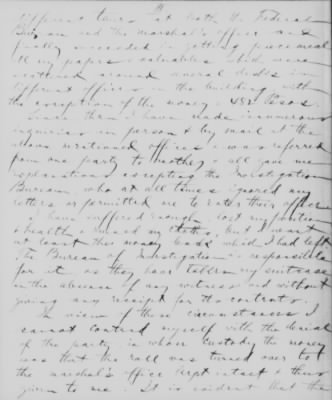 11
different times at both the Federal
Bureau and the marshal's office and
finally succeeded in getting piecemeal
all my papers & valuables which were
scattered around several desks in
different offices in the building with
the exception of the money & 482 Pesos.
Since then I have made innumerous
inquiries in person & by mail at the
above mentioned offices & was referred
from one party to another & all gave me
explanations excepting the Investigation
Bureau who at all times ignored my
letters or permitted me to enter their office
I have suffered enough, lost my position
& health & ruined my clothes, but I want
at least the money back which I had left
The Bureau of Investigation is responsible
for it as they have taken my suitcase
in the absence of any witness and without
giving any receipt for its contents.
In view of these circumstances I
cannot control myself with the denial
of the party in whose custody the money
was that the roll was turned over to
the marshal's office kept intact & thus
given to me. It is evident that the